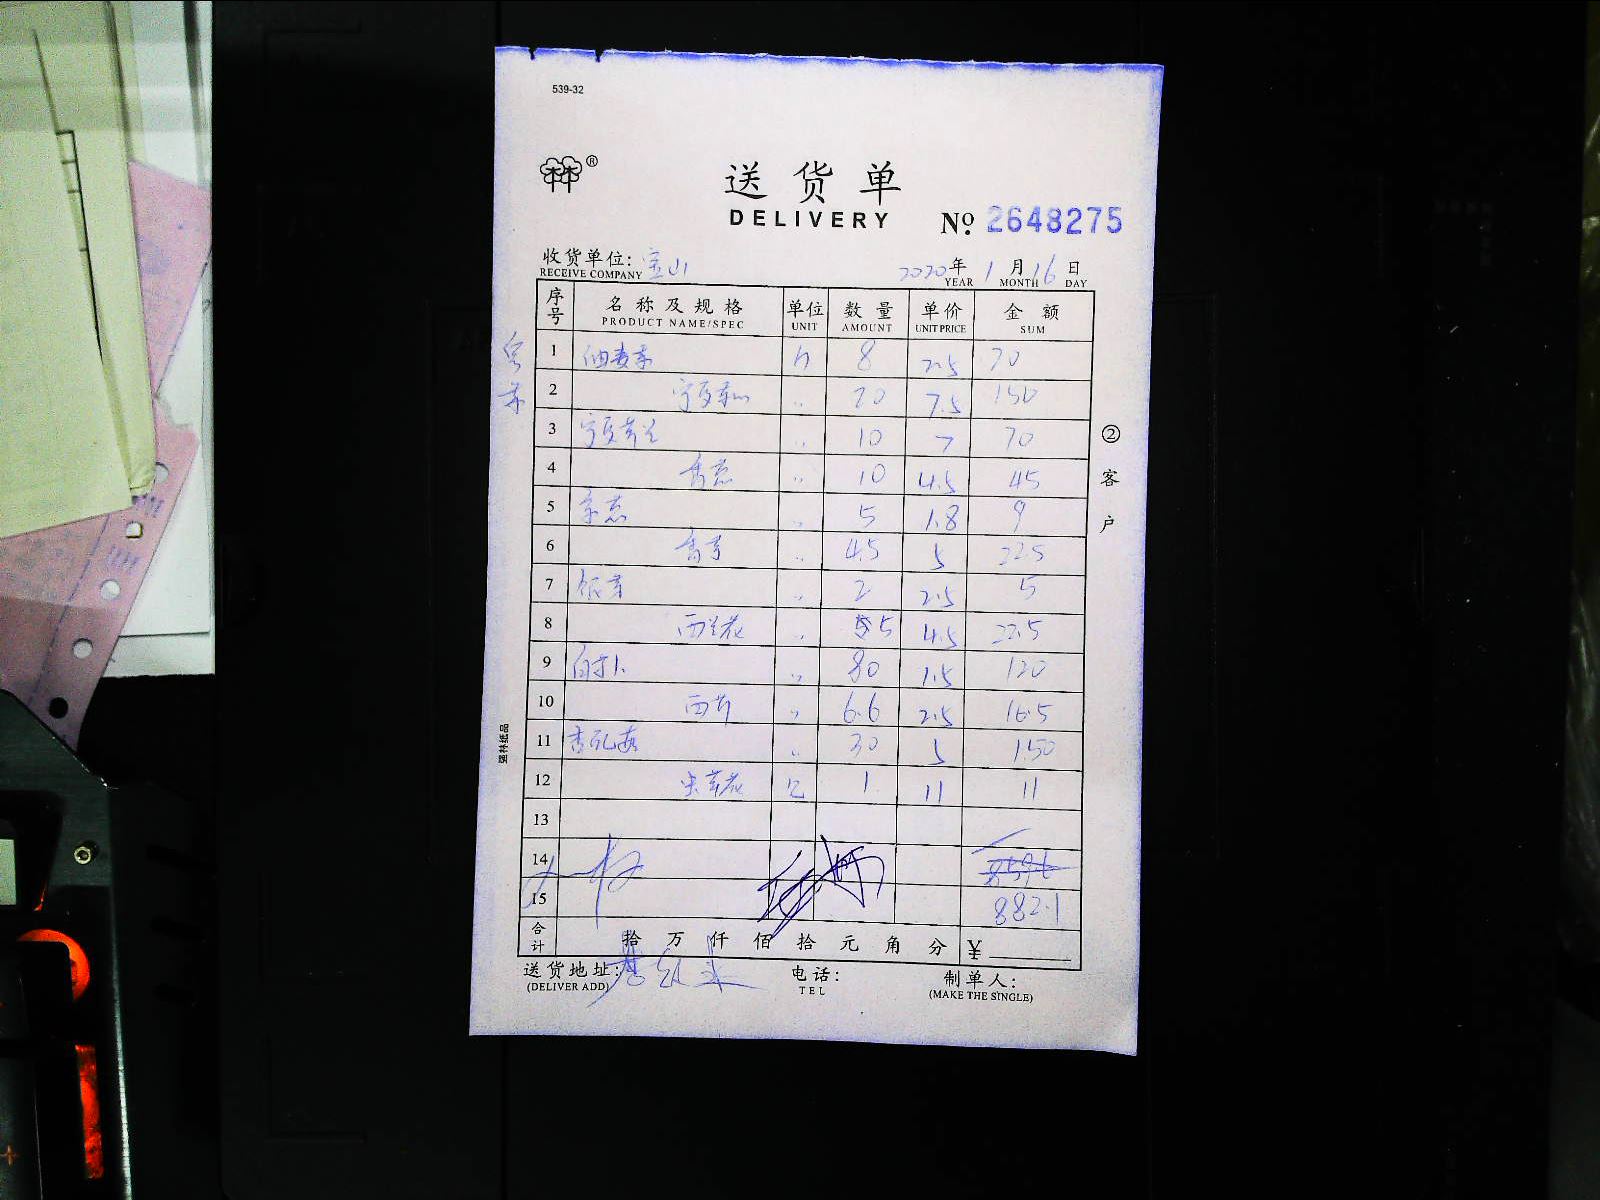 539-32
®
送货单
DELIVERY № 2648275
收货单位: 宝山 2020年 1月16日
RECEIVE COMPANY YEAR MONTH DAY
序号 名称及规格 单位 数量 单价 金额
PRODUCT NAME/SPEC UNIT AMOUNT UNIT PRICE SUM
1 油麦菜 8 2.5 20
2 宁夏菜心 " 20 7.5 150
3 宁夏芥兰 " 10 7 70
4 香葱 " 10 4.5 45
5 京葱 " 5 1.8 9
6 香芋 " 4.5 5 22.5
7 银芽 " 2 2.5 5
8 西兰花 " 5 4.5 22.5
9 白萝卜 " 80 1.5 120
10 西芹 " 6.6 2.5 16.5
11 杏鲍菇 " 30 5 150
12 虫草花 1 11 11
13
14
15 882.1
合计 拾万仟佰拾元角分 ¥
送货地址: 电话: 制单人:
(DELIVER ADD) TEL (MAKE THE SINGLE)
②客户
强林纸品